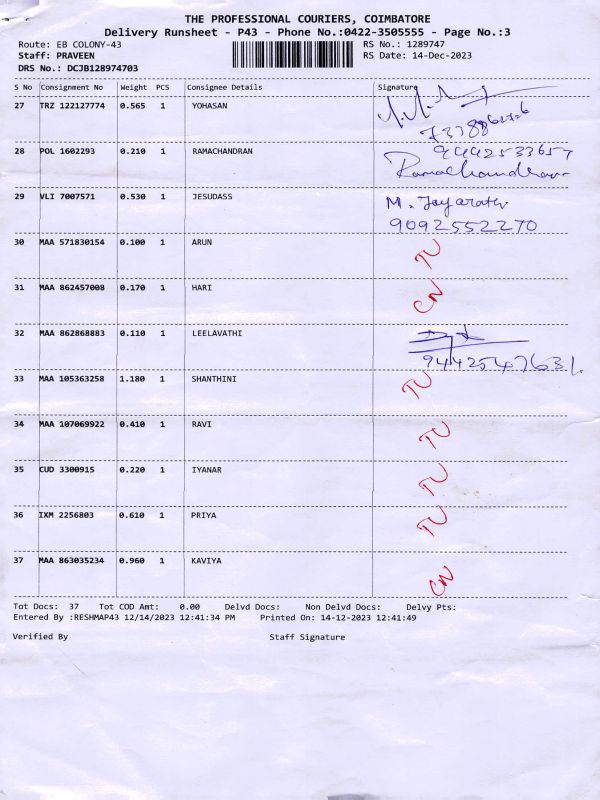 THE PROFESSIONAL COURIERS, COIMBATORE
Delivery Runsheet - P43 - Phone No.:0422-3505555 - Page No.:3
Route: EB COLONY-43 RS No.: 1289747
Staff: PRAVEEN RS Date: 14-Dec-2023
DRS No.: DCJB128974703
S No Consignment No Weight PCS Consignee Details Signature
27 TRZ 122127774 0.565 1 YOHASAN
28 POL 1602293 0.210 1 RAMACHANDRAN 9442533657
Ramachandran
29 VLI 7007571 0.530 1 JESUDASS M. Jayarathi
9092552270
30 MAA 571830154 0.100 1 ARUN TU
31 MAA 862457008 0.170 1 HARI CN
32 MAA 862868883 0.110 1 LEELAVATHI
9442547631.
33 MAA 105363258 1.180 1 SHANTHINI TU
34 MAA 107069922 0.410 1 RAVI TU
35 CUD 3300915 0.220 1 IYANAR TU
36 IXM 2256803 0.610 1 PRIYA TU
37 MAA 863035234 0.960 1 KAVIYA CN
Tot Docs: 37 Tot COD Amt: 0.00 Delvd Docs: Non Delvd Docs: Delvy Pts:
Entered By :RESHMAP43 12/14/2023 12:41:34 PM Printed On: 14-12-2023 12:41:49
Verified By Staff Signature